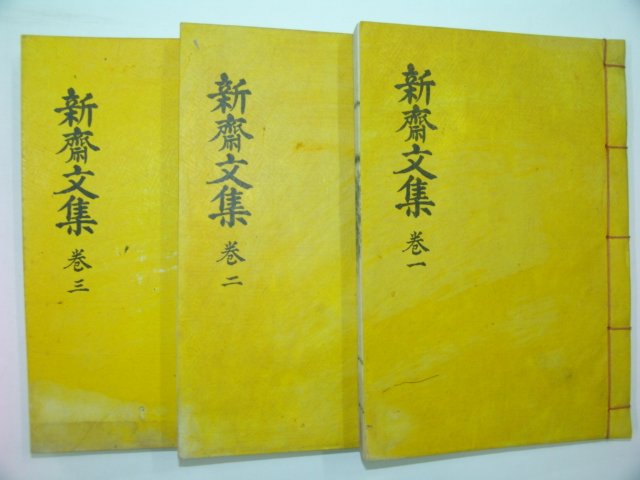 新齋文集 卷一
新齋文集 卷二
新齋文集 卷三